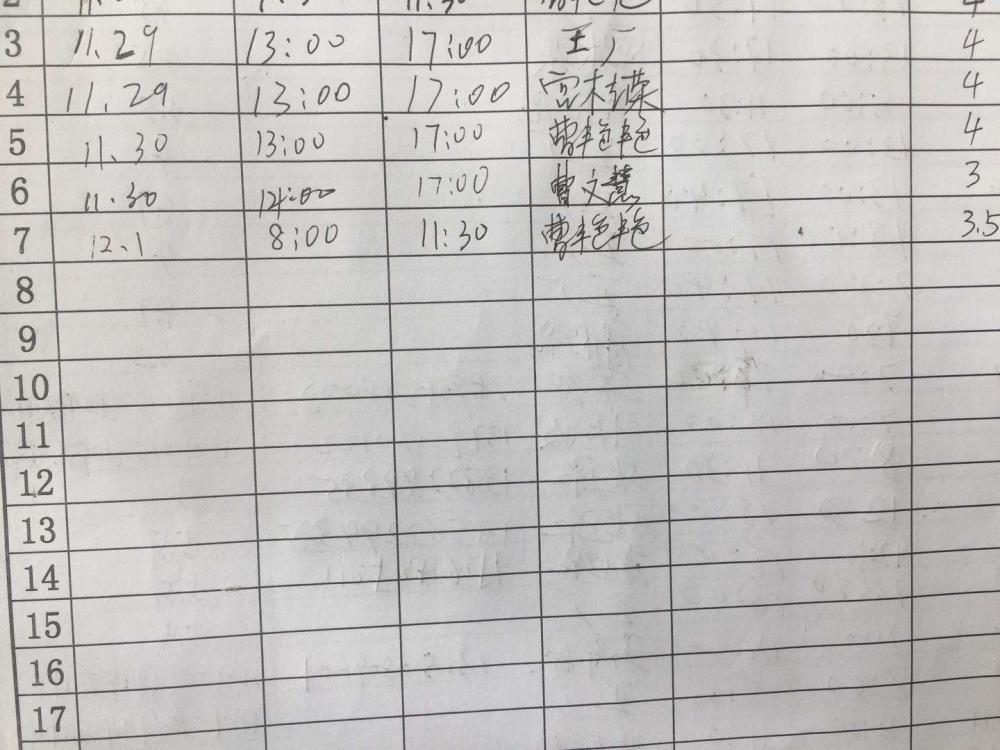 3 11.29 13:00 17:00 王厂 4
4 11.29 13:00 17:00 4
5 11.30 13:00 17:00 曹艳艳 4
6 11.30 14:00 17:00 曹文慧 3
7 12.1 8:00 11:30 曹艳艳 3.5
8
9
10
11
12
13
14
15
16
17